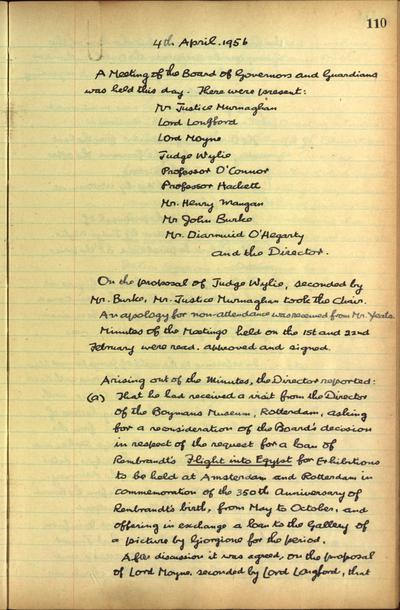 110
4th April. 1956
A Meeting of the Board of Governors and Guardians
was held this day. There were present:
Mr Justice Murnaghan
Lord Longford
Lord Moyne
Judge Wylie
Professor O'Connor
Professor Hackett
Mr. Henry Mangan
Mr John Burke
Mr. Diarmuid O'Hegarty
and the Director.
On the proposal of Judge Wylie, seconded by
Mr. Burke, Mr. Justice Murnaghan took the chair.
An apology for non-attendance was received from Mr. Yeats.
Minutes of the Meetings held on the 1st and 22nd
February were read. approved and signed.
Arising out of the Minutes, the Director reported:
(a) That he had received a visit from the Director
of the Boymans Museum, Rotterdam, asking
for a reconsideration of the Board's decision
in respect of the request for a loan of
Rembrandt's Flight into Egypt for Exhibitions
to be held at Amsterdam and Rotterdam in
commemoration of the 350th Anniversary of
Rembrandt's birth, from May to October, and
offering in exchange a loan to the Gallery of
a picture by Giorgione for the period.
After discussion it was agreed, on the proposal
of Lord Moyne, seconded by Lord Longford, that